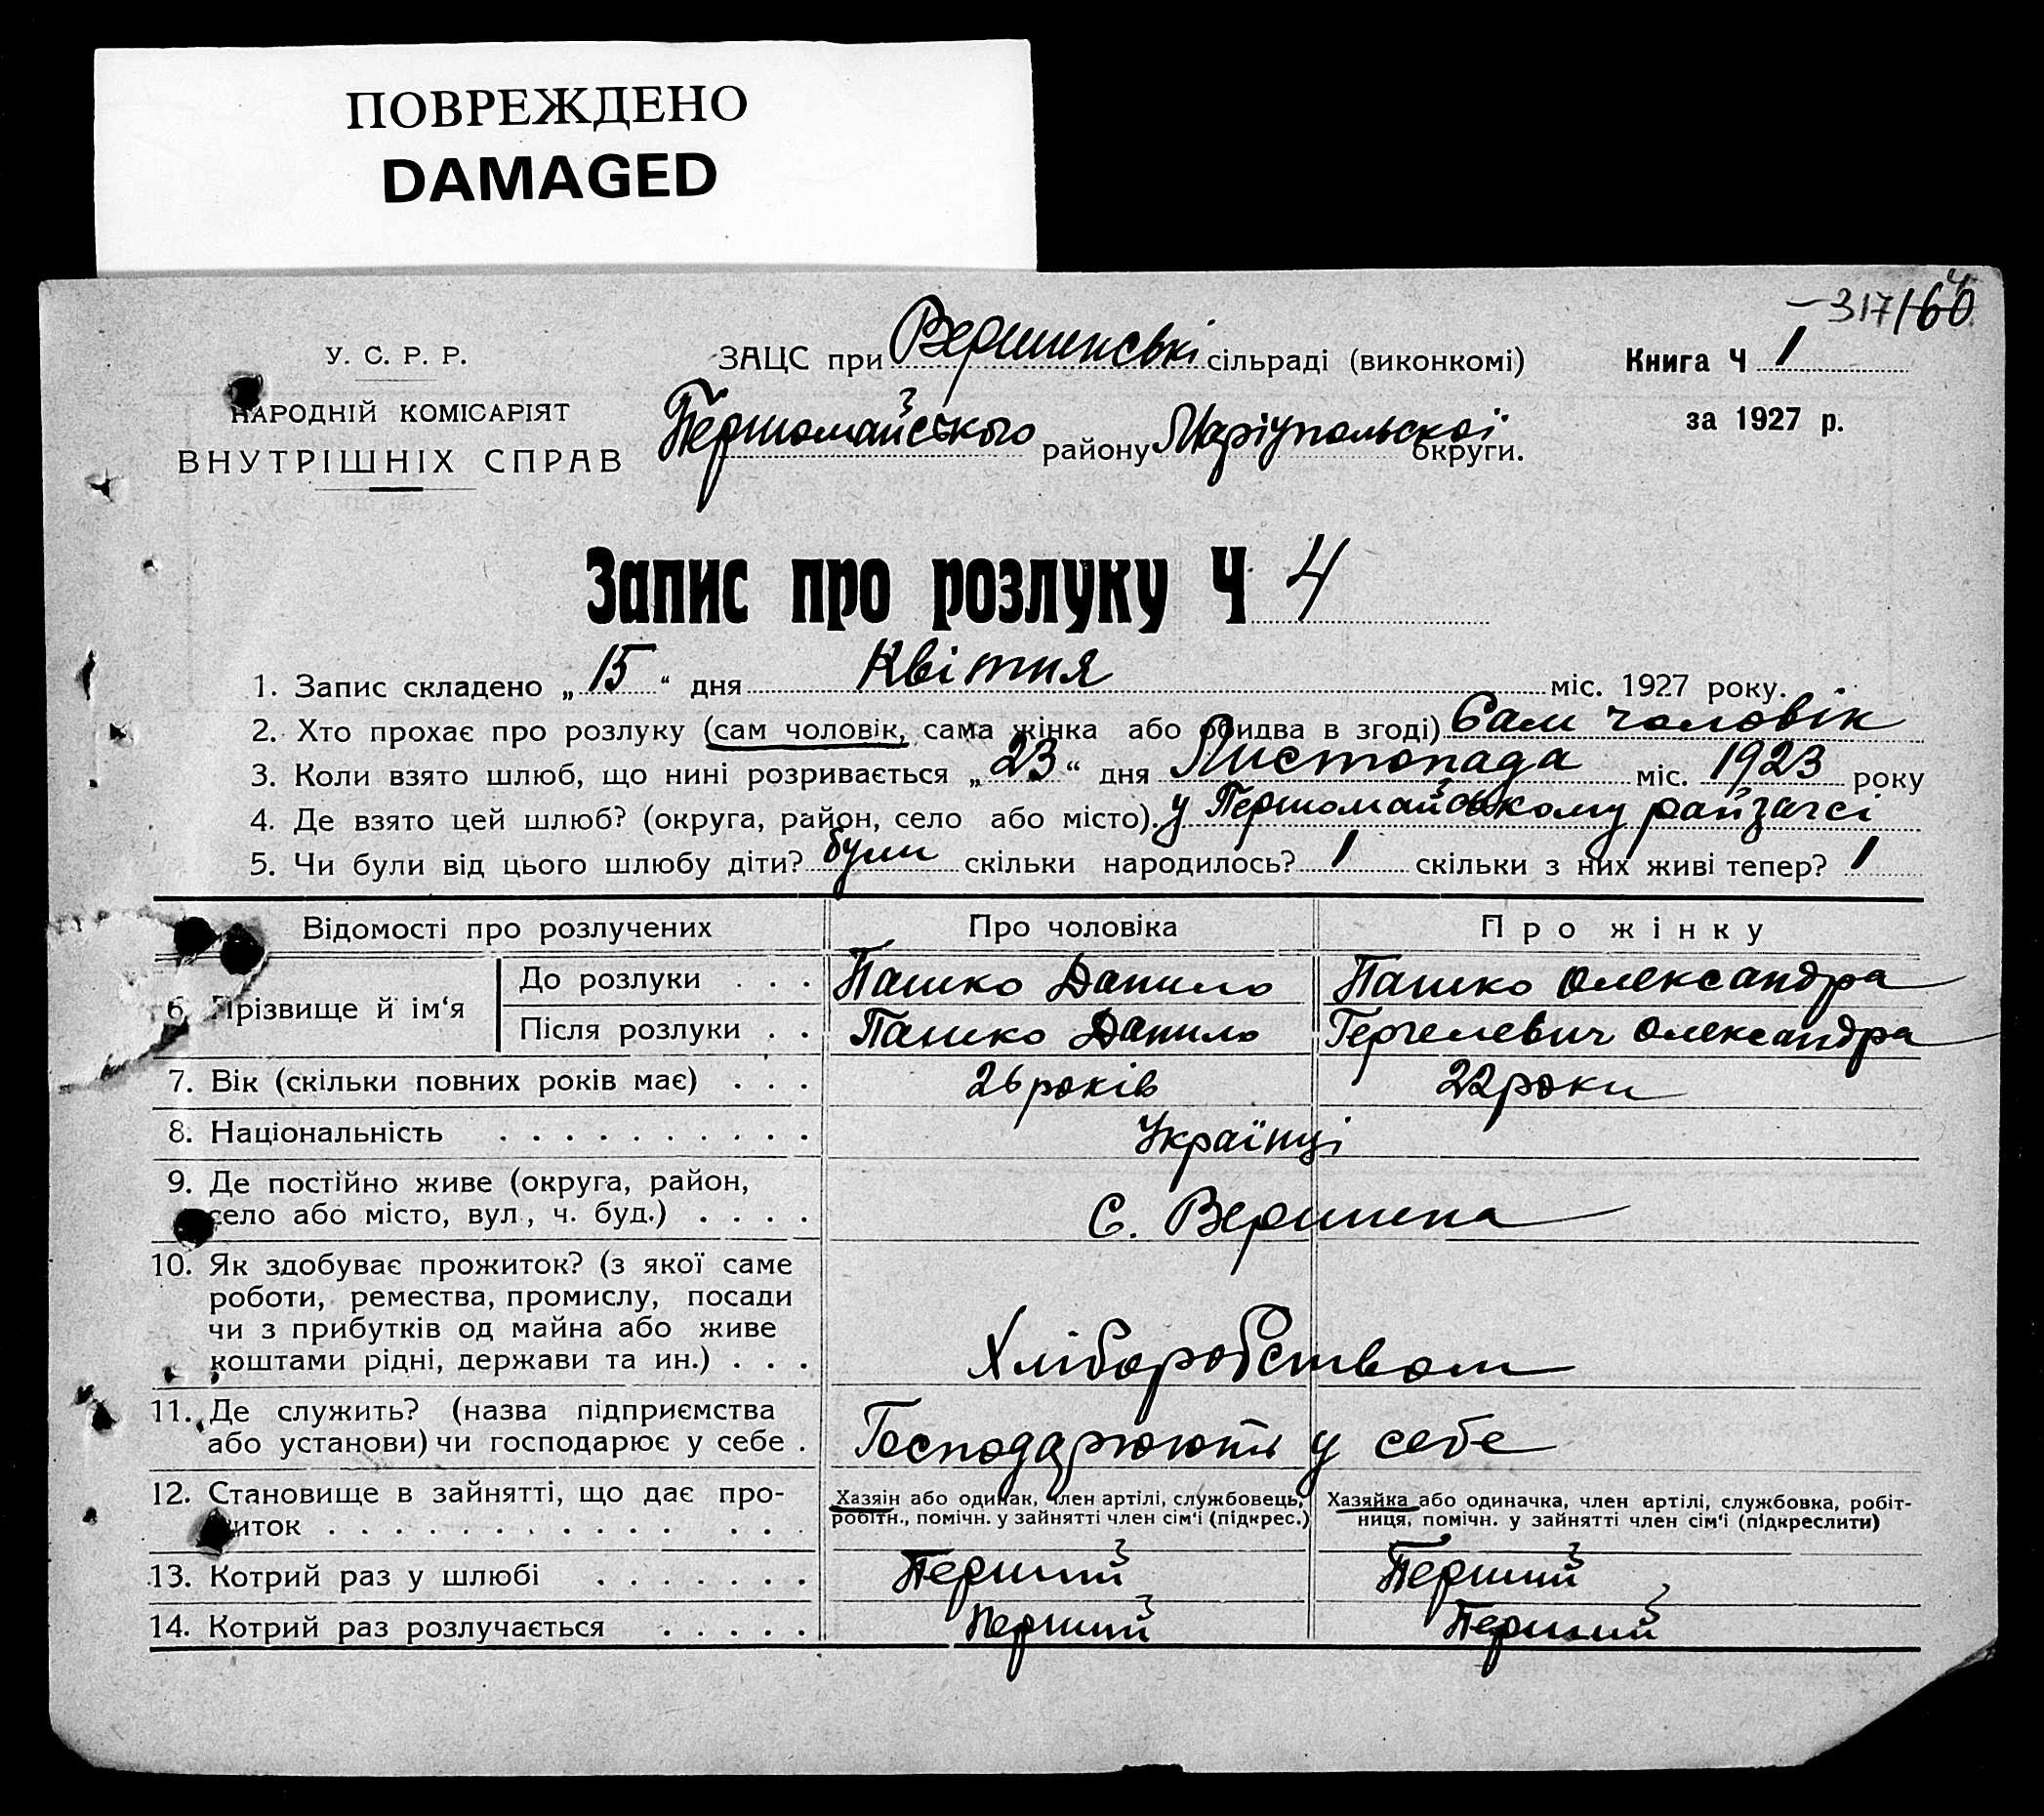 ПОВРЕЖДЕНО
DAMAGED
317/160
У. С. Р. Р.
НАРОДНІЙ КОМІСАРІЯТ
ВНУТРІШНІХ СПРАВ
ЗАЦС при Вершинські сільраді (виконкомі)
Першомайського району Маріупольскої округи.
Книга Ч 1
за 1927 р.
Запис про розлуку Ч 4
1. Запис складено „ 15 “ дня Квітня міс. 1927 року.
2. Хто прохає про розлуку (сам чоловік, сама жінка або обидва в згоді) Сам чоловік
3. Коли взято шлюб, що нині розривається „ 23 “ дня Листопада міс. 1923 року
4. Де взято цей шлюб? (округа, район, село або місто). у Першомайському райзагсі
5. Чи були від цього шлюбу діти? були скільки народилось? 1 скільки з них живі тепер? 1
Відомості про розлучених Про чоловіка Про жінку
6. Прізвище й ім‘я
До розлуки . . . Пашко Данило Пашко Олександра
Після розлуки . . Пашко Данило Гергелевич Олександра
7. Вік (скільки повних років має) . . . 26 років 22 роки
8. Національність . . . . . . . . . . Українці
9. Де постійно живе (округа, район,
село або місто, вул., ч. буд.) . . . . С. Вершина
10. Як здобуває прожиток? (з якої саме
роботи, ремества, промислу, посади
чи з прибутків од майна або живе
коштами рідні, держави та ин.) . . . Хліборобством
11. Де служить? (назва підприємства
або установи) чи господарює у себе . Господарюють у себе
12. Становище в зайнятті, що дає про-
житок . . . . . . . . . . . . .
Хазяїн або одинак, член артілі, службовець,
робітн., помічн. у зайнятті член сім‘ї (підкрес.)
Хазяйка або одиначка, член артілі, службовка, робіт-
ниця, помічн. у зайнятті член сім‘ї (підкреслити)
13. Котрий раз у шлюбі . . . . . . . Перший Перший
14. Котрий раз розлучається . . . . . Перший Перший